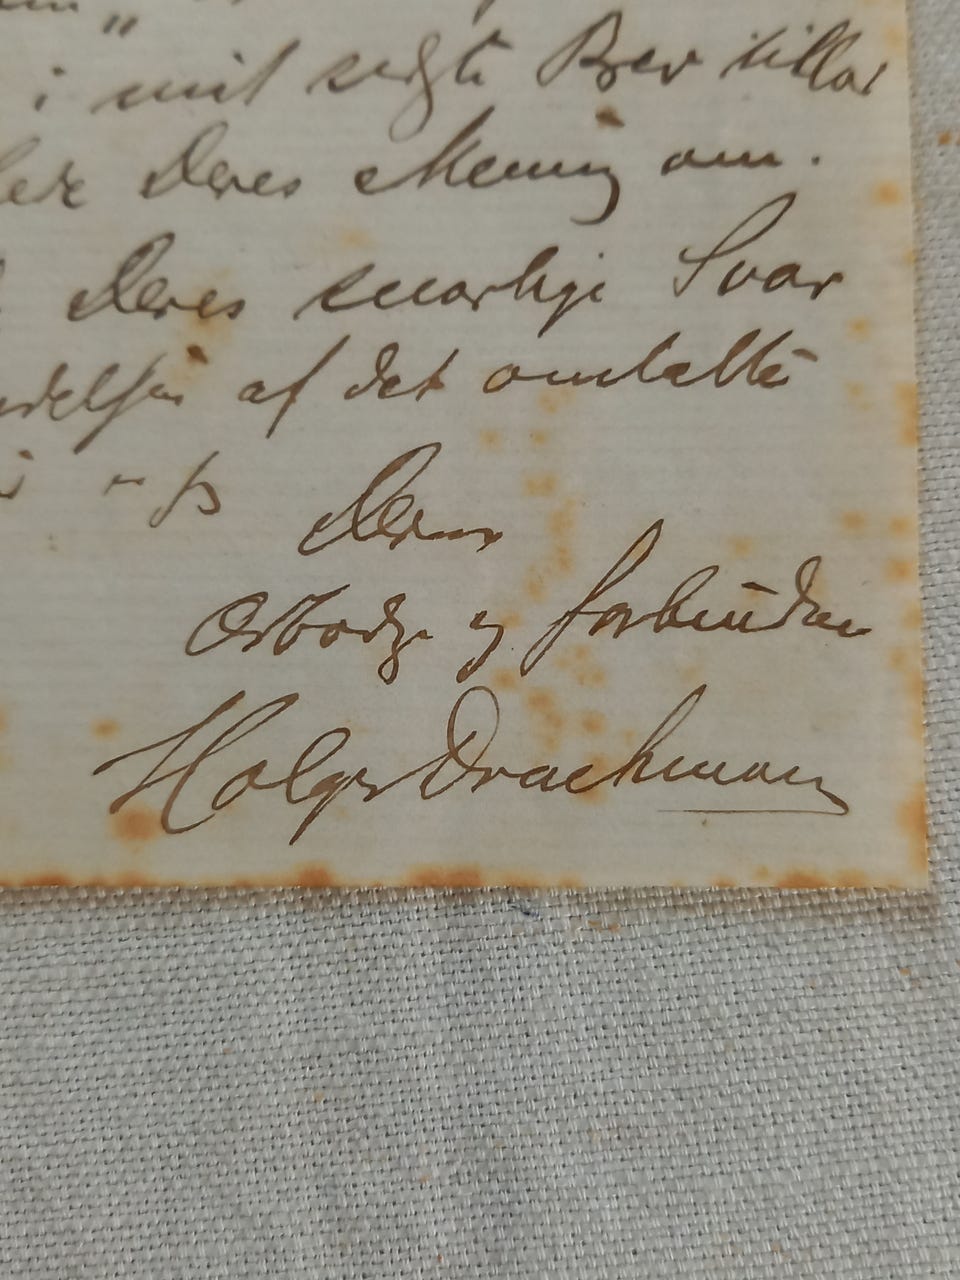 i mit sidste Brev tillod
Deres Mening om.
Deres snarlige Svar
af det omtalte
Deres
Ærbødige og forbundne
Holger Drachmann